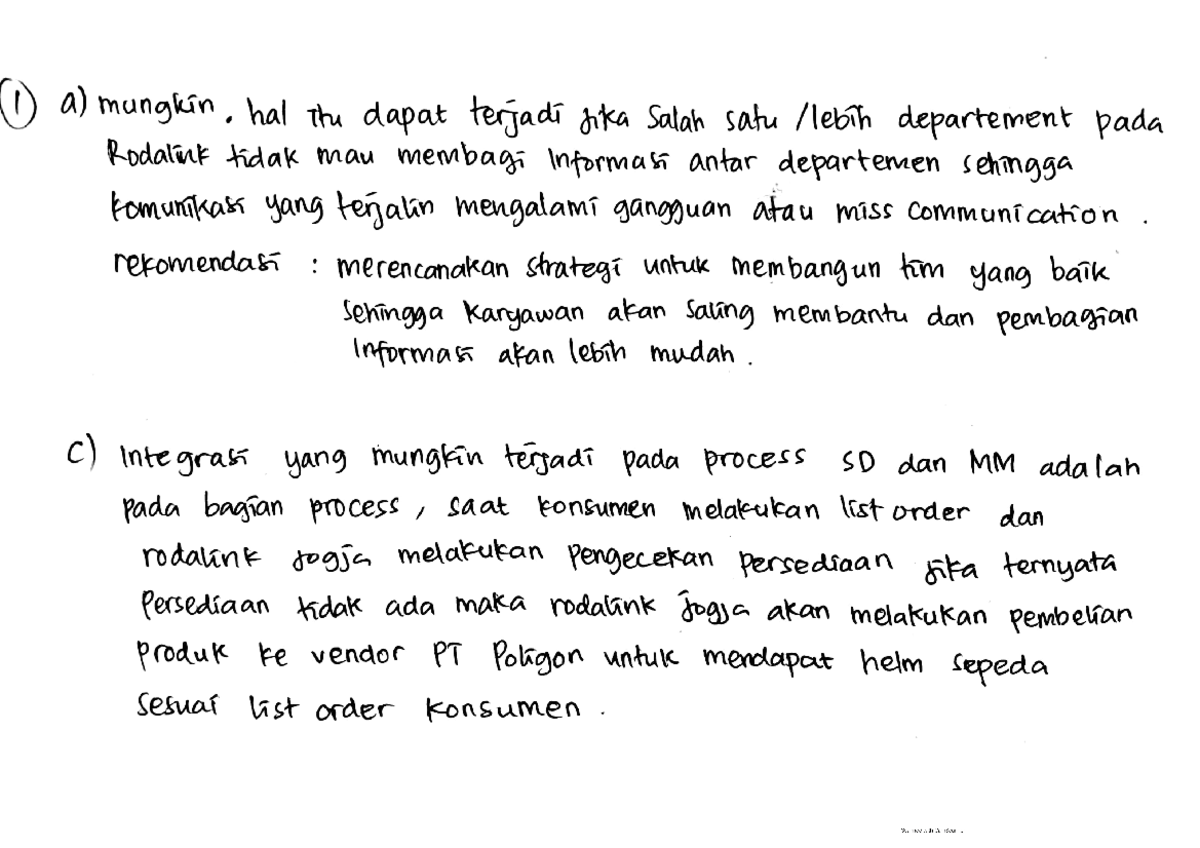 ① a) mungkin. hal itu dapat terjadi jika Salah satu /lebih departement pada
Rodalink tidak mau membagi Informasi antar departemen sehingga
komunikasi yang terjalin mengalami gangguan atau miss communication.
rekomendasi : merencanakan strategi untuk membangun tim yang baik
sehingga karyawan akan saling membantu dan pembagian
Informasi akan lebih mudah.
c) Integrasi yang mungkin terjadi pada process SD dan MM adalah
pada bagian process, saat konsumen melakukan list order dan
rodalink Jogja melakukan pengecekan persediaan jika ternyata
Persediaan tidak ada maka rodalink Jogja akan melakukan pembelian
produk ke vendor PT Poligon untuk mendapat helm sepeda
sesuai list order konsumen.